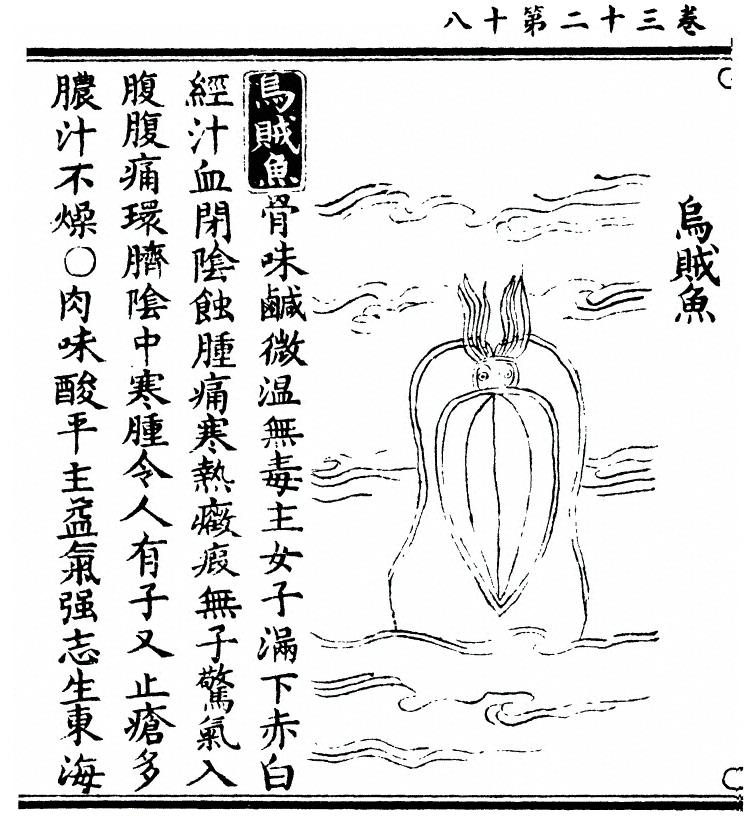 卷三十二第十八
烏賊魚
烏賊魚骨味鹹微温無毒主女子漏下赤白
經汁血閉陰蝕腫痛寒熱癥瘕無子驚氣入
腹腹痛環臍陰中寒腫令人有子又止瘡多
膿汁不燥○肉味酸平主益氣强志生東海